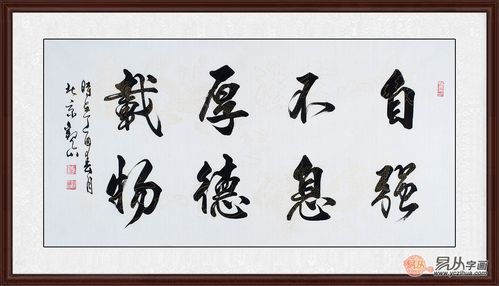 自强
不息
厚德
載物
时在丁酉春月
北京观山
易从
易从字画
www.yczihua.com